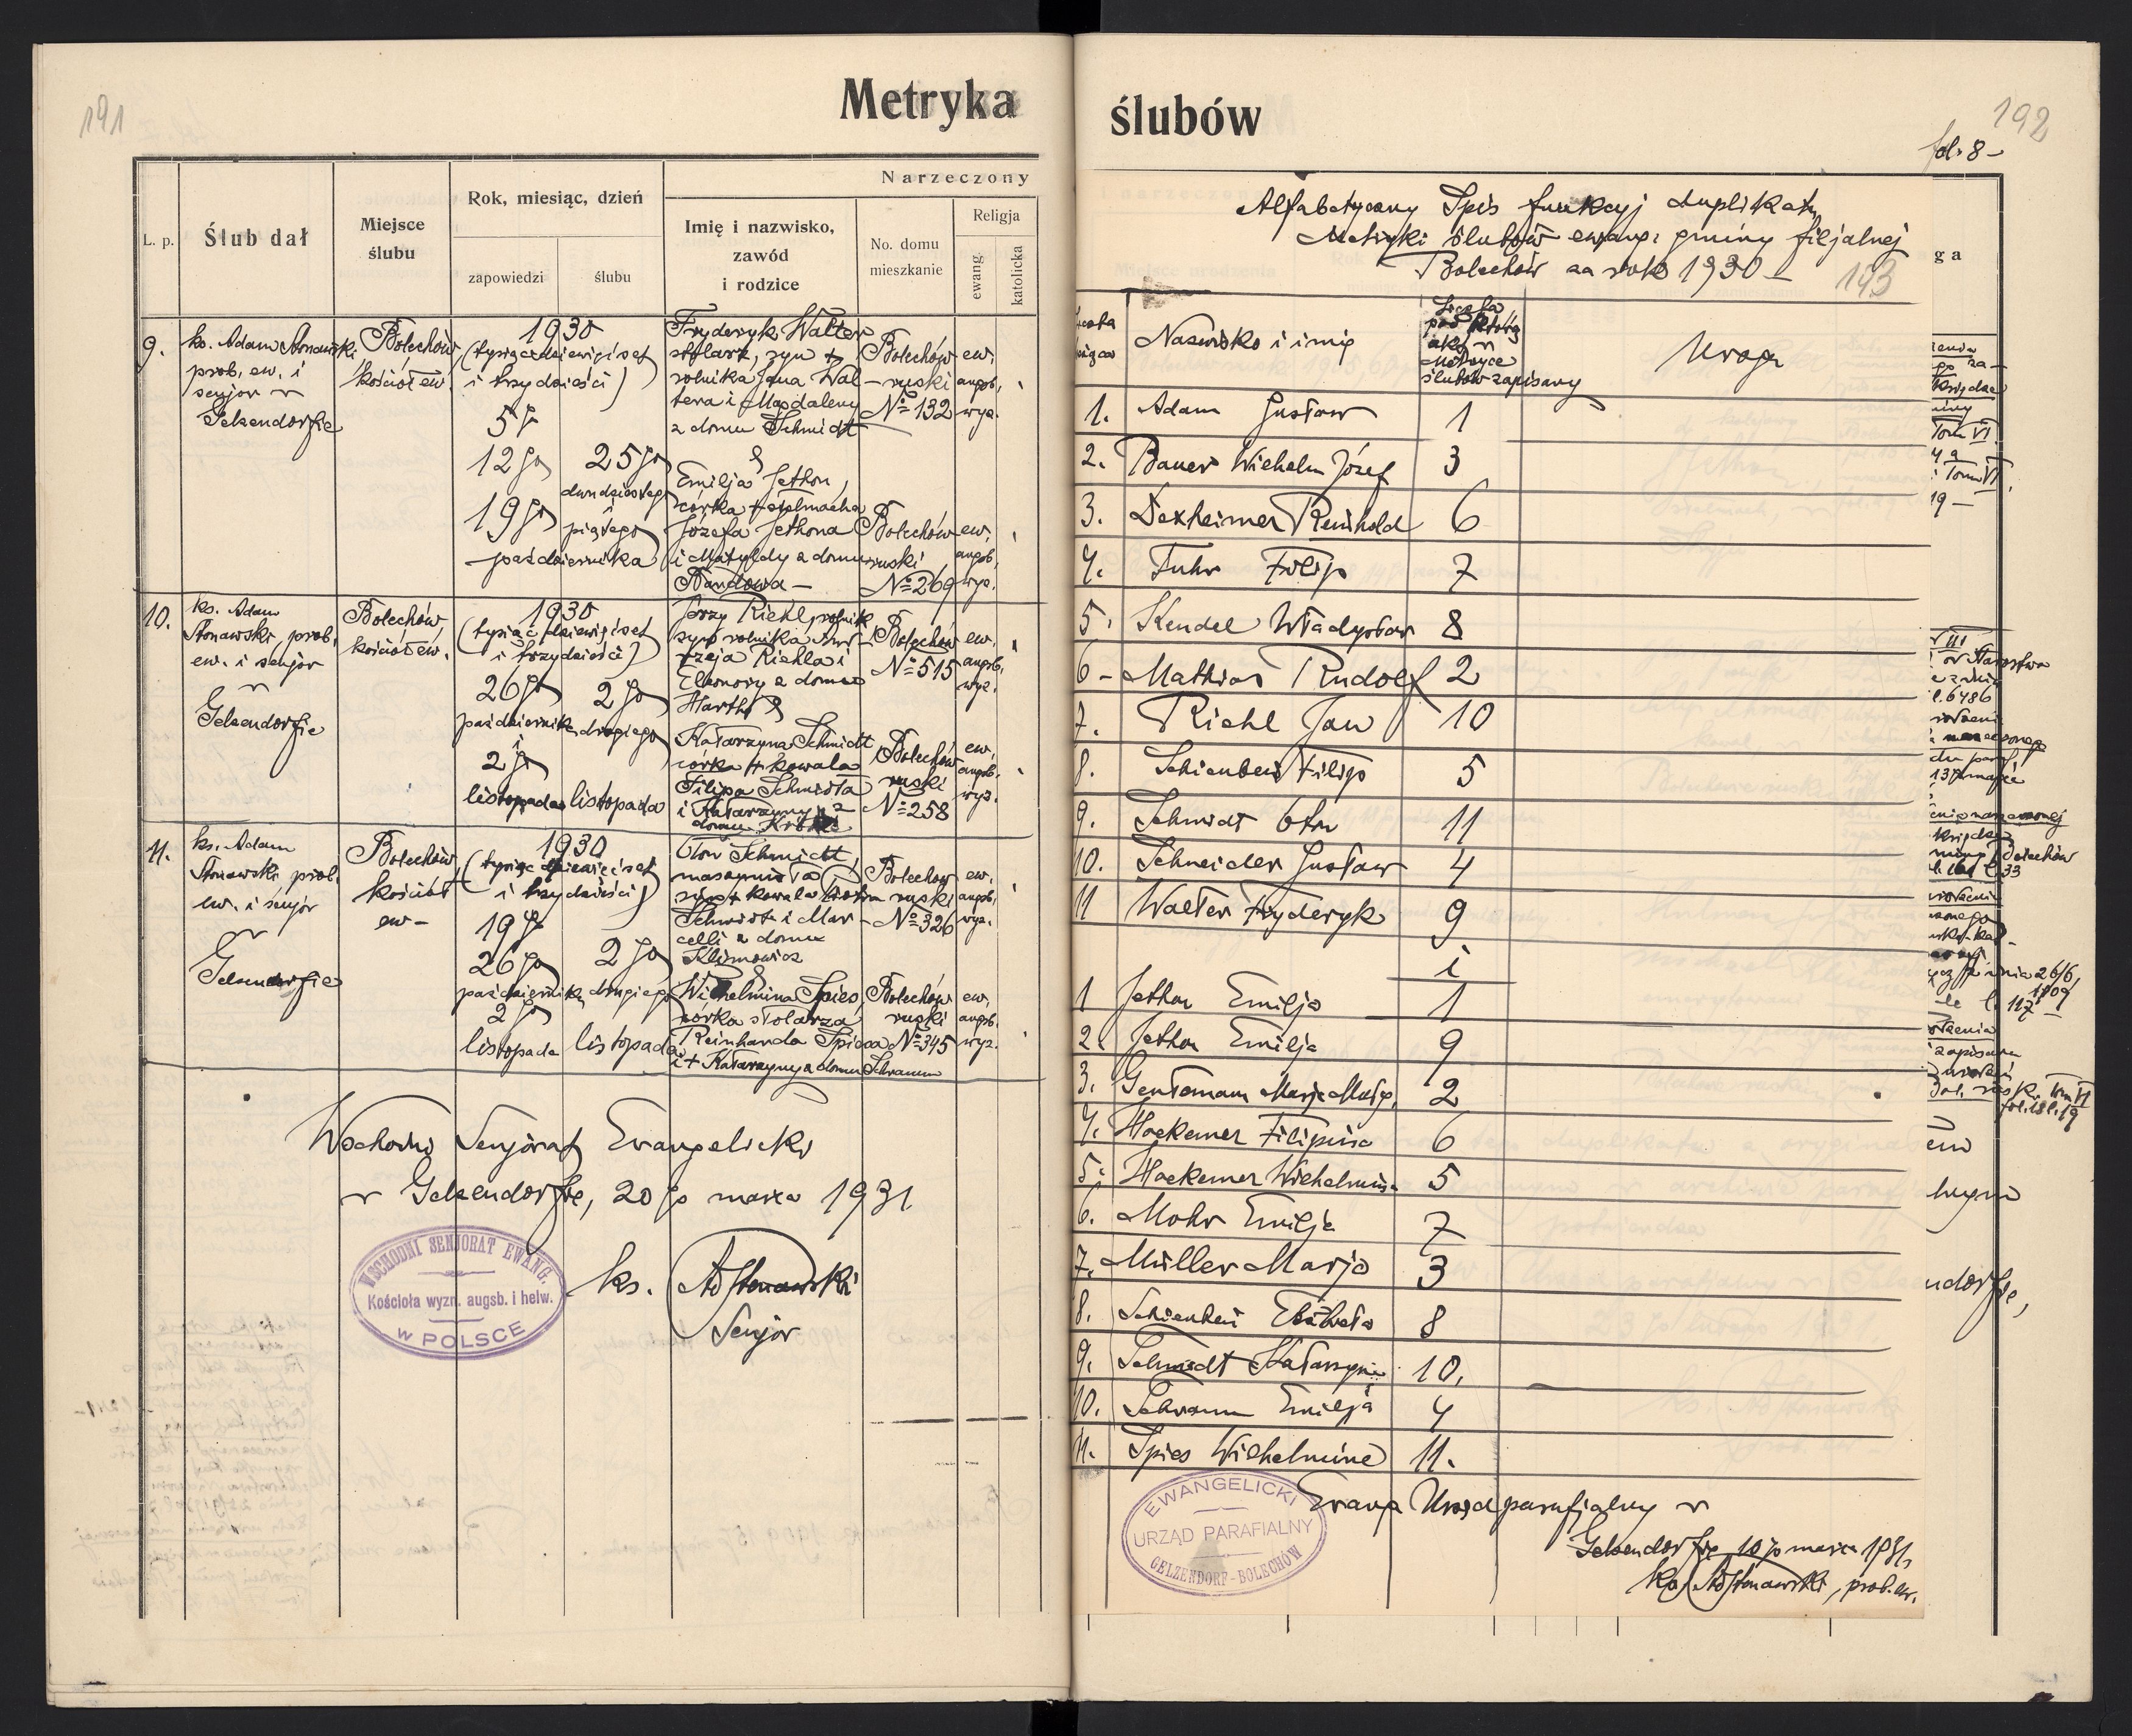 191
Metryka
L. p.
Ślub dał
Miejsce
ślubu
Rok, miesiąc, dzień
zapowiedzi
ślubu
Narzeczony
Imię i nazwisko,
zawód
i rodzice
No. domu
mieszkanie
Religja
ewang.
katolicka
9.
ks. Adam Stonawski
prob. ew. i
senjor w
Gelsendorfie
Bolechów
kościół ew.
1930
(tysiąc dziewięćset
i trzydzieści)
5go
12go
19go
25go
dwudziestego
piątego
października
Fryderyk Walter
stolarz, syn +
rolnika Jana Wal
tera i Magdaleny
z domu Schmidt
&
Emilja Jethon,
córka + stelmacha
Józefa Jethona
i Matyldy z domu
Bolechów
ruski
No 132
ew.
augsb.
wyz.
Bolechów
ruski
No 269
ew.
augsb.
wyz.
10.
ks. Adam
Stonawski, prob.
ew. i senjor
w
Gelsendorfie
Bolechów
kościół ew.
1930
(tysiąc dziewięćset
i trzydzieści)
26go
października
i
2go
listopada
2go
drugiego
listopada
Jerzy Riehl, rolnik
syn rolnika
Riehla i
Eleonory z domu
&
Katarzyna Schmidt
córka + kowala
Filipa Schmidta
i Katarzyny z
domu
Bolechów
No 515
ew.
augsb.
wyz.
Bolechów
ruski
No 258
ew.
augsb.
wyz.
11.
ks. Adam
Stonawski prob.
ew. i senjor
w
Gelsendorfie
Bolechów
kościół
ew-
1930
(tysiąc dziewięćset
i trzydzieści)
19go
26go
października
2go
listopada
2go
drugiego
listopada
Oton Schmidt,
maszynista
syn + kowala
Schmidta i Mar-
celli z domu
Klimowicz
&
Wilhelmina Spies,
córka stolarza
Reinharda Spiesa
i + Katarzyny z domu Schramm
Bolechów
ruski
No 326
ew.
augsb.
wyz.
Bolechów
ruski
No 345
ew.
augsb.
wyz.
Wschodni Senjorat Ewangelicki
w Gelsendorfie, 20go marca 1931
WSCHODNI SENJORAT EWANG.
Kościoła wyzn. augsb. i helw.
W POLSCE
ks. AdStonawski
Senjor
192
ślubów
fol. 8-
Alfabetyczny Spis funkcyj duplikatu
Metryki ślubów ewang. gminy filjalnej
Bolechów za rok 1930-
193
ga
Nazwisko i imię
Liczba
pod którą
akt w
Metryce
ślubów zapisany
Uwaga
1. Adam Gustaw 1
2. Bauer Wilhelm Józef 3
3. Dexheimer Reinhold 6
4. Fuhr Filip 7
5. Kendel Władysław 8
6- Mathias Rudolf 2
7. Riehl Jan 10
8. Schienbein Filip 5
9. Schmidt Oton 11
10. Schneider Gustaw 4
11 Walter Fryderyk 9
i
1 Jethon Emilja 1
2. Jethon Emilja 9
3. Gentemann Marja Małg. 2
4. Hockemer Filipina 6
5. Hockemer Wilhelmina 5
6. Mohr Emilja 7
7. Müller Marja 3
8. Schienbein Elżbieta 8
9. Schmidt Katarzyna 10.
10. Schramm Emilja 4
11. Spies Wilhelmine 11.
EWANGELICKI
URZĄD PARAFIALNY
GELZENDORF-BOLECHÓW
Ewang Urząd parafjalny w
Gelsendorfie 10go marca 1931,
ks. AdStonawski, prob. ew.
Tom VI
Tom VI
19-
l. 6486
Bolechów
26/6
1909
117
zapisana
Tom VI
fol. 18 l. 19